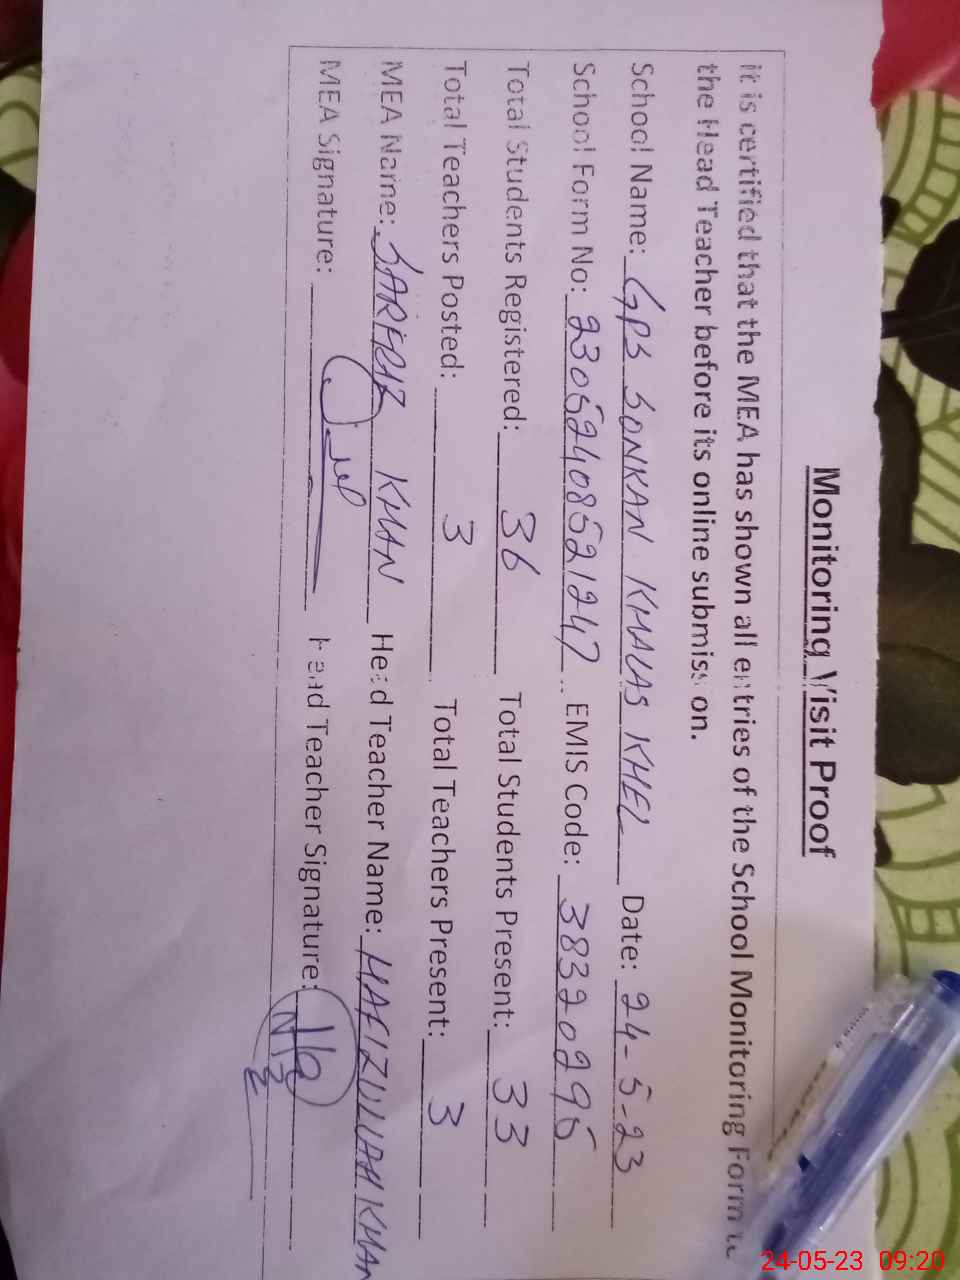 Monitoring Visit Proof
it is certified that the MEA has shown all entries of the School Monitoring Form to
the Head Teacher before its online submission.
School Name: GPS SONKAN KHALAS KHEL Date: 24-5-23
School Form No: 23052408521247 EMIS Code: 38320296
Total Students Registered: 36 Total Students Present: 33
Total Teachers Posted: 3 Total Teachers Present: 3
MEA Name: SARFRAZ KHAN Head Teacher Name: HAFIZULLAH KHAN
MEA Signature: Head Teacher Signature:
24-05-23 09:20